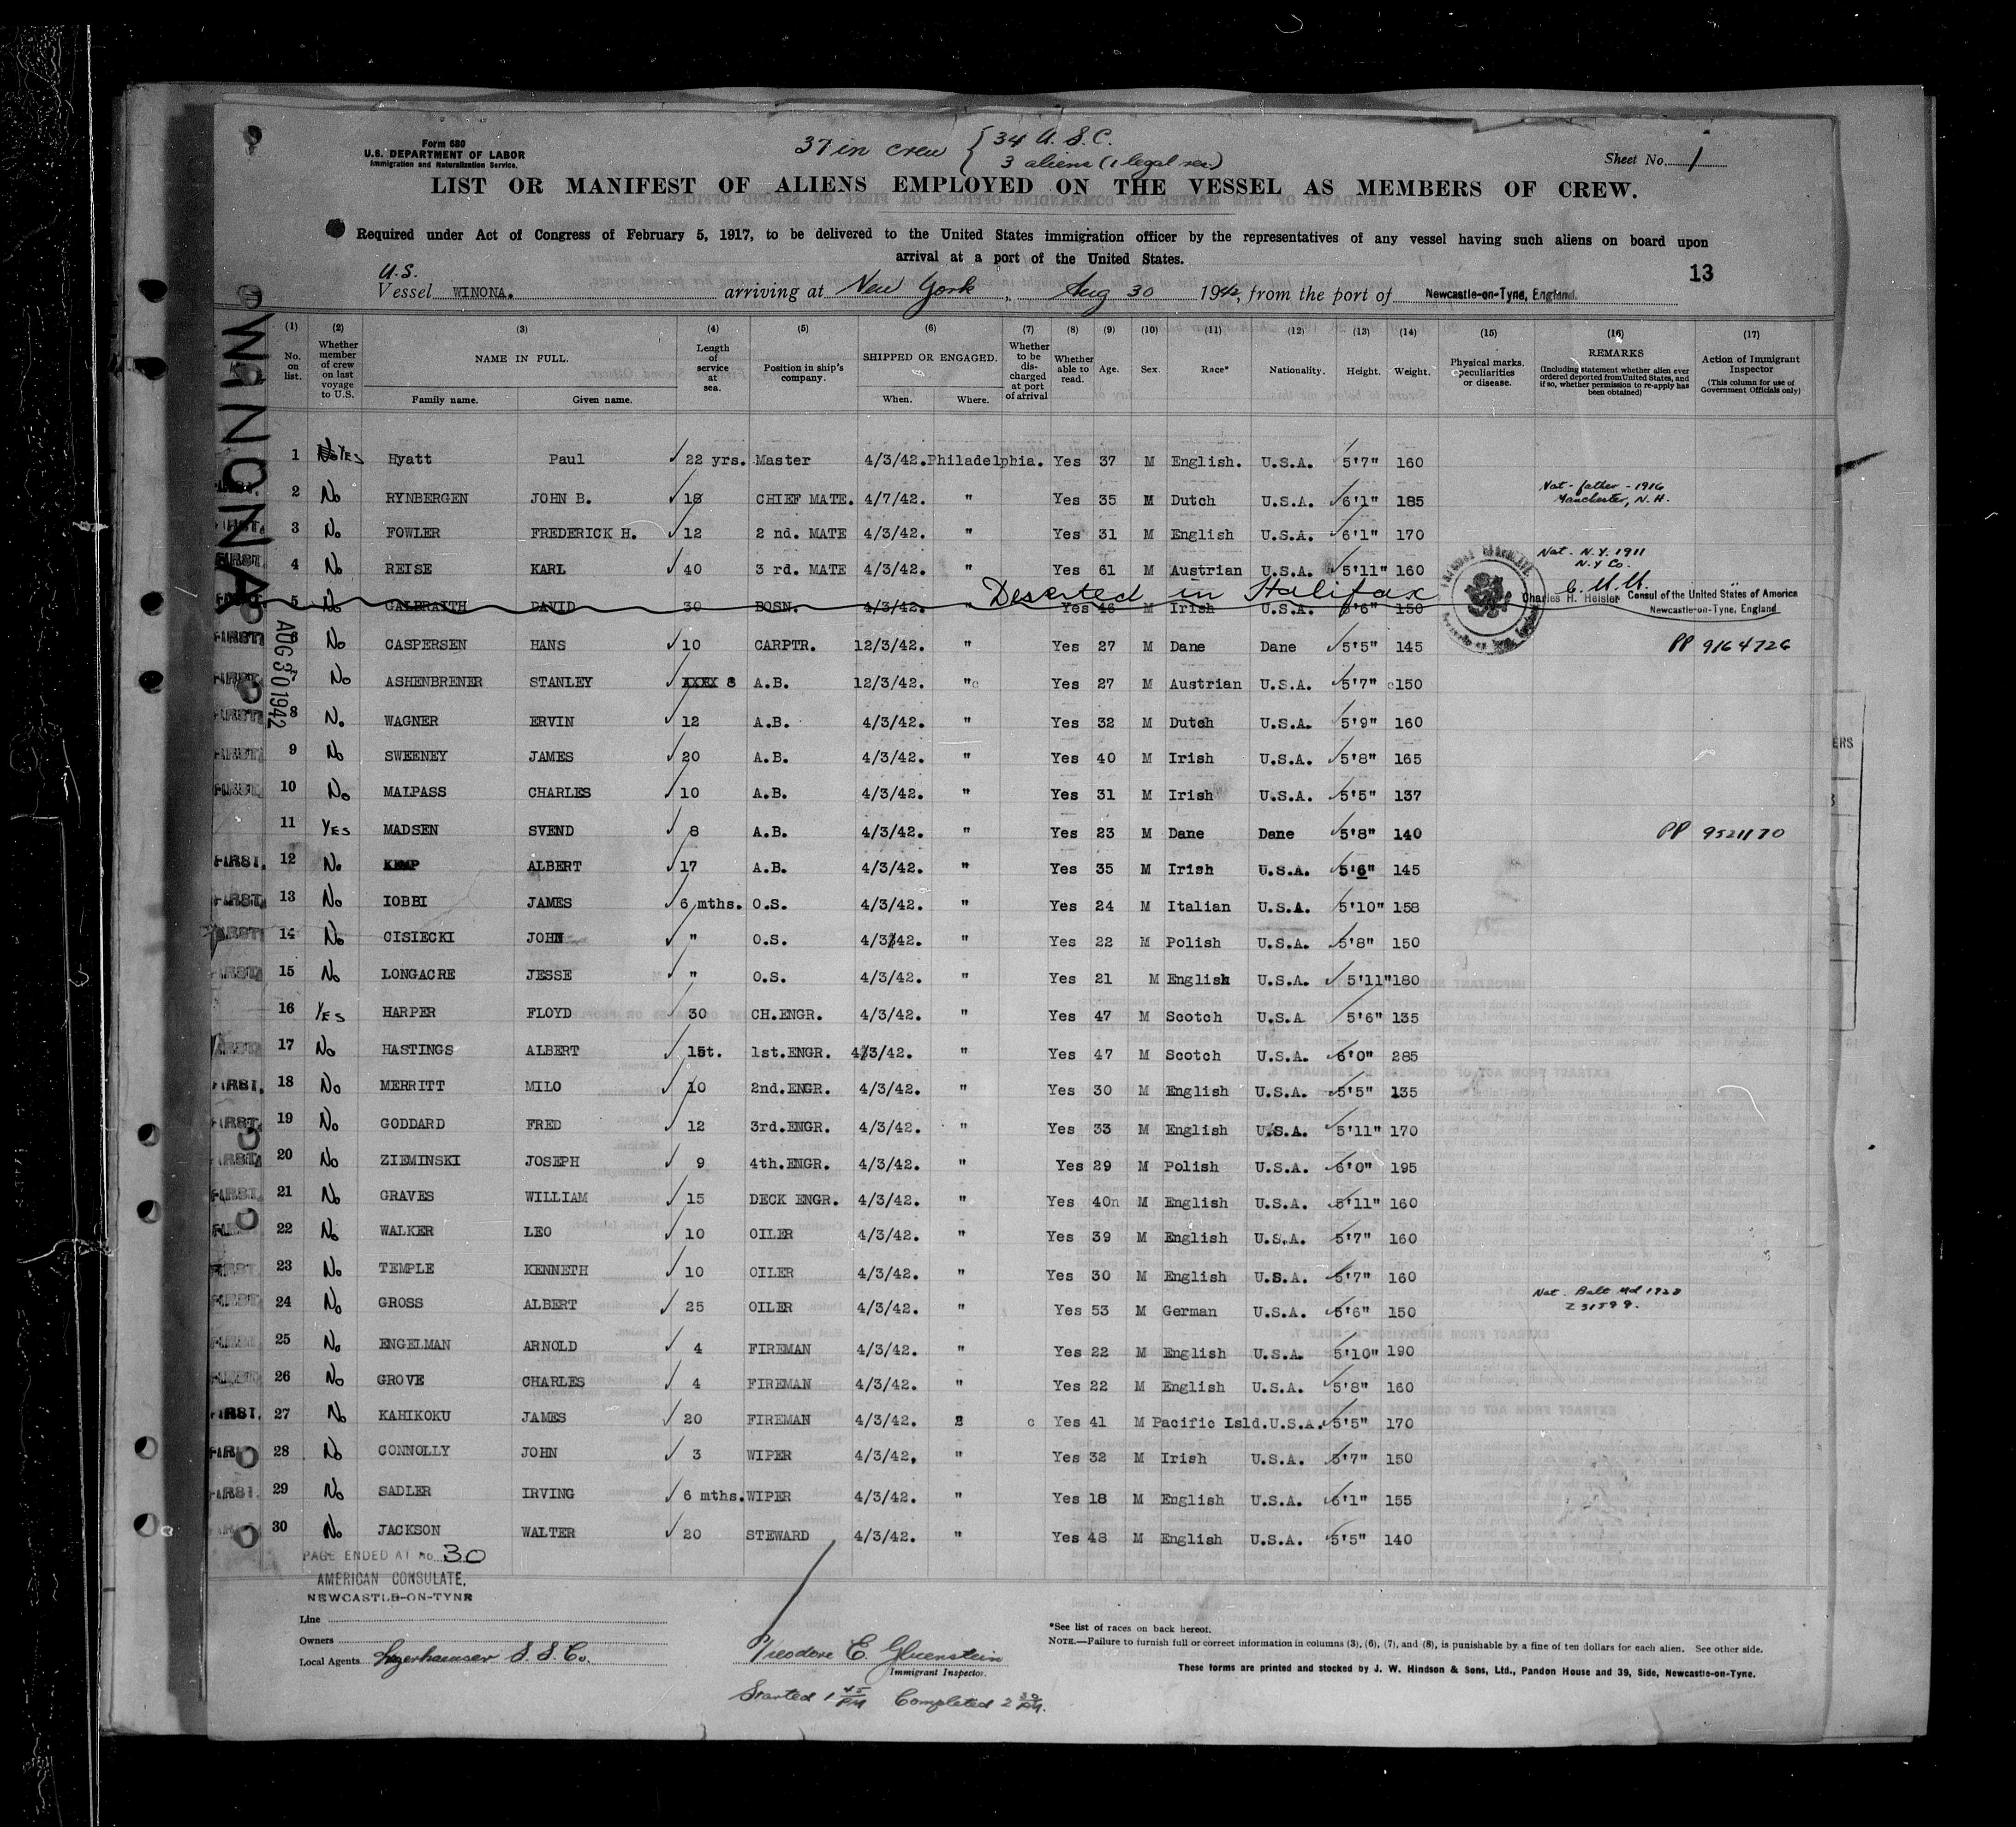 Form 680
U.S. DEPARTMENT OF LABOR
Immigration and Naturalization Service.
37 in crew { 34 U.S.C.
3 aliens (1 legal res.)
Sheet No. 1
LIST OR MANIFEST OF ALIENS EMPLOYED ON THE VESSEL AS MEMBERS OF CREW.
Required under Act of Congress of February 5, 1917, to be delivered to the United States immigration officer by the representatives of any vessel having such aliens on board upon
arrival at a port of the United States.
13
U.S.
Vessel WINONA. arriving at New York, Aug 30 1942, from the port of Newcastle-on-Tyne, England.
WINONA
AUG 30 1942
(1) (2) (3) (4) (5) (6) (7) (8) (9) (10) (11) (12) (13) (14) (15) (16) (17)
No. on list.
Whether member of crew on last voyage to U.S.
NAME IN FULL.
Family name. Given name.
Length of service at sea.
Position in ship's company.
SHIPPED OR ENGAGED.
When. Where.
Whether to be discharged at port of arrival
Whether able to read.
Age. Sex. Race* Nationality. Height. Weight.
Physical marks, peculiarities or disease.
REMARKS
(Including statement whether alien ever ordered deported from United States, and if so, whether permission to re-apply has been obtained)
Action of Immigrant Inspector
(This column for use of Government Officials only)
1 No YES Hyatt Paul 22 yrs. Master 4/3/42. Philadelphia. Yes 37 M English. U.S.A. 5'7" 160
2 No RYNBERGEN JOHN B. 18 CHIEF MATE. 4/7/42. " Yes 35 M Dutch U.S.A. 6'1" 185 Nat - father - 1916
Manchester, N.H.
3 No FOWLER FREDERICK H. 12 2 nd. MATE 4/3/42. " Yes 31 M English U.S.A. 6'1" 170
4 No REISE KARL 40 3 rd. MATE 4/3/42. " Yes 61 M Austrian U.S.A. 5'11" 160 Nat. N.Y. 1911
N.Y Co.
Deserted in Halifax
5 No GALBRAITH DAVID 30 BOSN. 4/3/42. " Yes 46 M Irish U.S.A. 5'6" 150
Charles H. Heisler Consul of the United States of America
Newcastle-on-Tyne, England
6 No CASPERSEN HANS 10 CARPTR. 12/3/42. " Yes 27 M Dane Dane 5'5" 145 PP 9164726
7 No ASHENBRENER STANLEY XXXX 8 A.B. 12/3/42. "c Yes 27 M Austrian U.S.A. 5'7" c150
8 No WAGNER ERVIN 12 A.B. 4/3/42. " Yes 32 M Dutch U.S.A. 5'9" 160
9 No SWEENEY JAMES 20 A.B. 4/3/42. " Yes 40 M Irish U.S.A. 5'8" 165
10 No MALPASS CHARLES 10 A.B. 4/3/42. " Yes 31 M Irish U.S.A. 5'5" 137
11 YES MADSEN SVEND 8 A.B. 4/3/42. " Yes 23 M Dane Dane 5'8" 140 PP 9521170
FIRST. 12 No KEMP ALBERT 17 A.B. 4/3/42. " Yes 35 M Irish U.S.A. 5'6" 145
FIRST. 13 No IOBBI JAMES 6 mths. O.S. 4/3/42. " Yes 24 M Italian U.S.A. 5'10" 158
14 No CISIECKI JOHN " O.S. 4/3/42. " Yes 22 M Polish U.S.A. 5'8" 150
15 No LONGACRE JESSE " O.S. 4/3/42. " Yes 21 M English U.S.A. 5'11" 180
16 YES HARPER FLOYD 30 CH.ENGR. 4/3/42. " Yes 47 M Scotch U.S.A 5'6" 135
17 No HASTINGS ALBERT 15t. 1st.ENGR. 4/3/42. " Yes 47 M Scotch U.S.A. 6'0" 285
FIRST. 18 No MERRITT MILO 10 2nd.ENGR. 4/3/42. " Yes 30 M English U.S.A. 5'5" 135
FIRST. 19 No GODDARD FRED 12 3rd.ENGR. 4/3/42. " Yes 33 M English U.S.A. 5'11" 170
20 No ZIEMINSKI JOSEPH 9 4th.ENGR. 4/3/42. " Yes 29 M Polish U.S.A. 6'0" 195
FIRST. 21 No GRAVES WILLIAM 15 DECK ENGR. 4/3/42. " Yes 40n M English U.S.A. 5'11" 160
22 No WALKER LEO 10 OILER 4/3/42. " Yes 39 M English U.S.A. 5'7" 160
23 No TEMPLE KENNETH 10 OILER 4/3/42. " Yes 30 M English U.S.A. 5'7" 160
24 No GROSS ALBERT 25 OILER 4/3/42. " Yes 53 M German U.S.A. 5'6" 150 Nat. Balt Md 1928
25 No ENGELMAN ARNOLD 4 FIREMAN 4/3/42. " Yes 22 M English U.S.A. 5'10" 190
26 No GROVE CHARLES 4 FIREMAN 4/3/42. " Yes 22 M English U.S.A. 5'8" 160
FIRST. 27 No KAHIKOKU JAMES 20 FIREMAN 4/3/42. " c Yes 41 M Pacific Isld. U.S.A. 5'5" 170
28 No CONNOLLY JOHN 3 WIPER 4/3/42, " Yes 32 M Irish U.S.A. 5'7" 150
FIRST. 29 No SADLER IRVING 6 mths. WIPER 4/3/42. " Yes 18 M English U.S.A. 6'1" 155
30 No JACKSON WALTER 20 STEWARD 4/3/42. " Yes 48 M English U.S.A. 5'5" 140
PAGE ENDED AT No. 30
AMERICAN CONSULATE,
NEWCASTLE-ON-TYNE
Line
Owners
Local Agents S.S. Co.
Theodore E. Gluenstein
Immigrant Inspector.
Started 1 45 PM Completed 2 30 PM.
*See list of races on back hereof.
NOTE.—Failure to furnish full or correct information in columns (3), (6), (7), and (8), is punishable by a fine of ten dollars for each alien. See other side.
These forms are printed and stocked by J. W. Hindson & Sons, Ltd., Pandon House and 39, Side, Newcastle-on-Tyne.